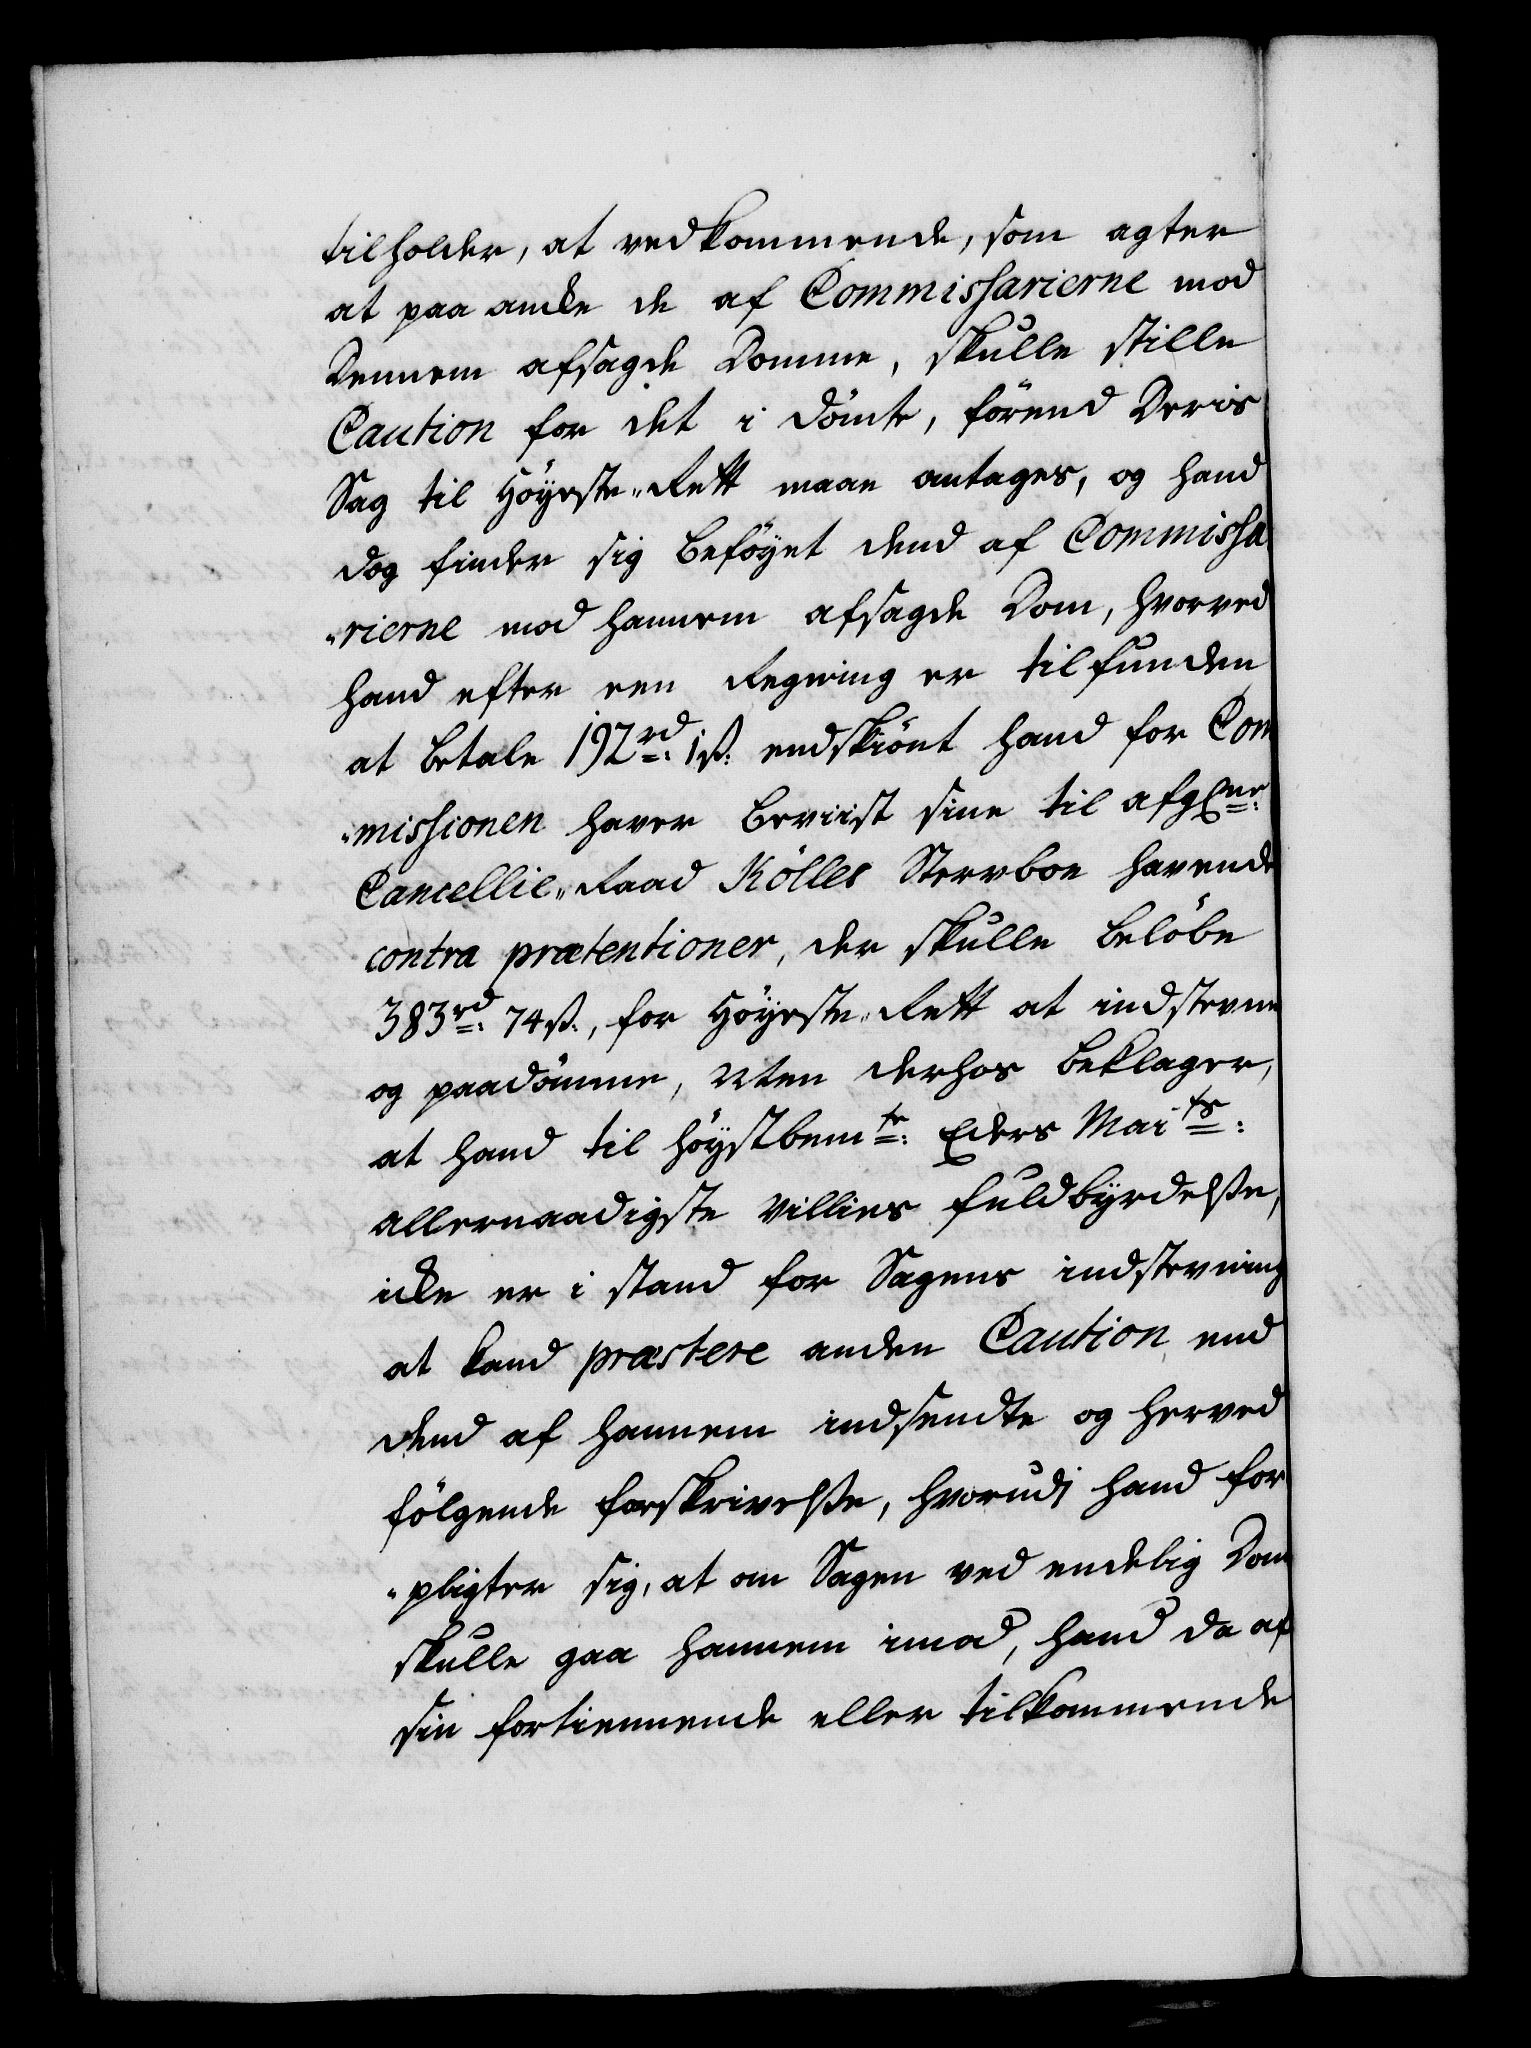 tilholder, at vedkommende, som agter
at paa anke de af Commissarierne mod
Dennem afsagde Domme, skulle stille
Caution for det i dömte, förend Deris
Sag til Höyeste-Rett maae antages, og hand
dog finder sig beföyet dend af Commissa
"rierne mod hannem afsagde Dom, hvorved
hand efter een Regning er tilfunden
at betale 192 rd: 1 ß: endskiönt hand for Com
"missionen haver beviist sine til afgl. ne:
Cancellie-Raad Kölles Stervboe havende
contra prætentioner, der skulle belöbe
383 rd: 74 ß., for Höyeste-Rett at indstevne
og paadömme, uten derhos beklager,
at hand til höystbem te: Eders Mai ts:
allernaadigste Villies fuldbyrdelsse,
icke er i stand for Sagens indstevning
at kand præstere anden Caution, end
dend af hannem indsendte og herved
fölgende forskrivelsse, hvorudj hand for
"pligter sig, at om Sagen ved endelig Dom
skulle gaa hannem imod, hand da af
sin fortiennende eller tilkommende